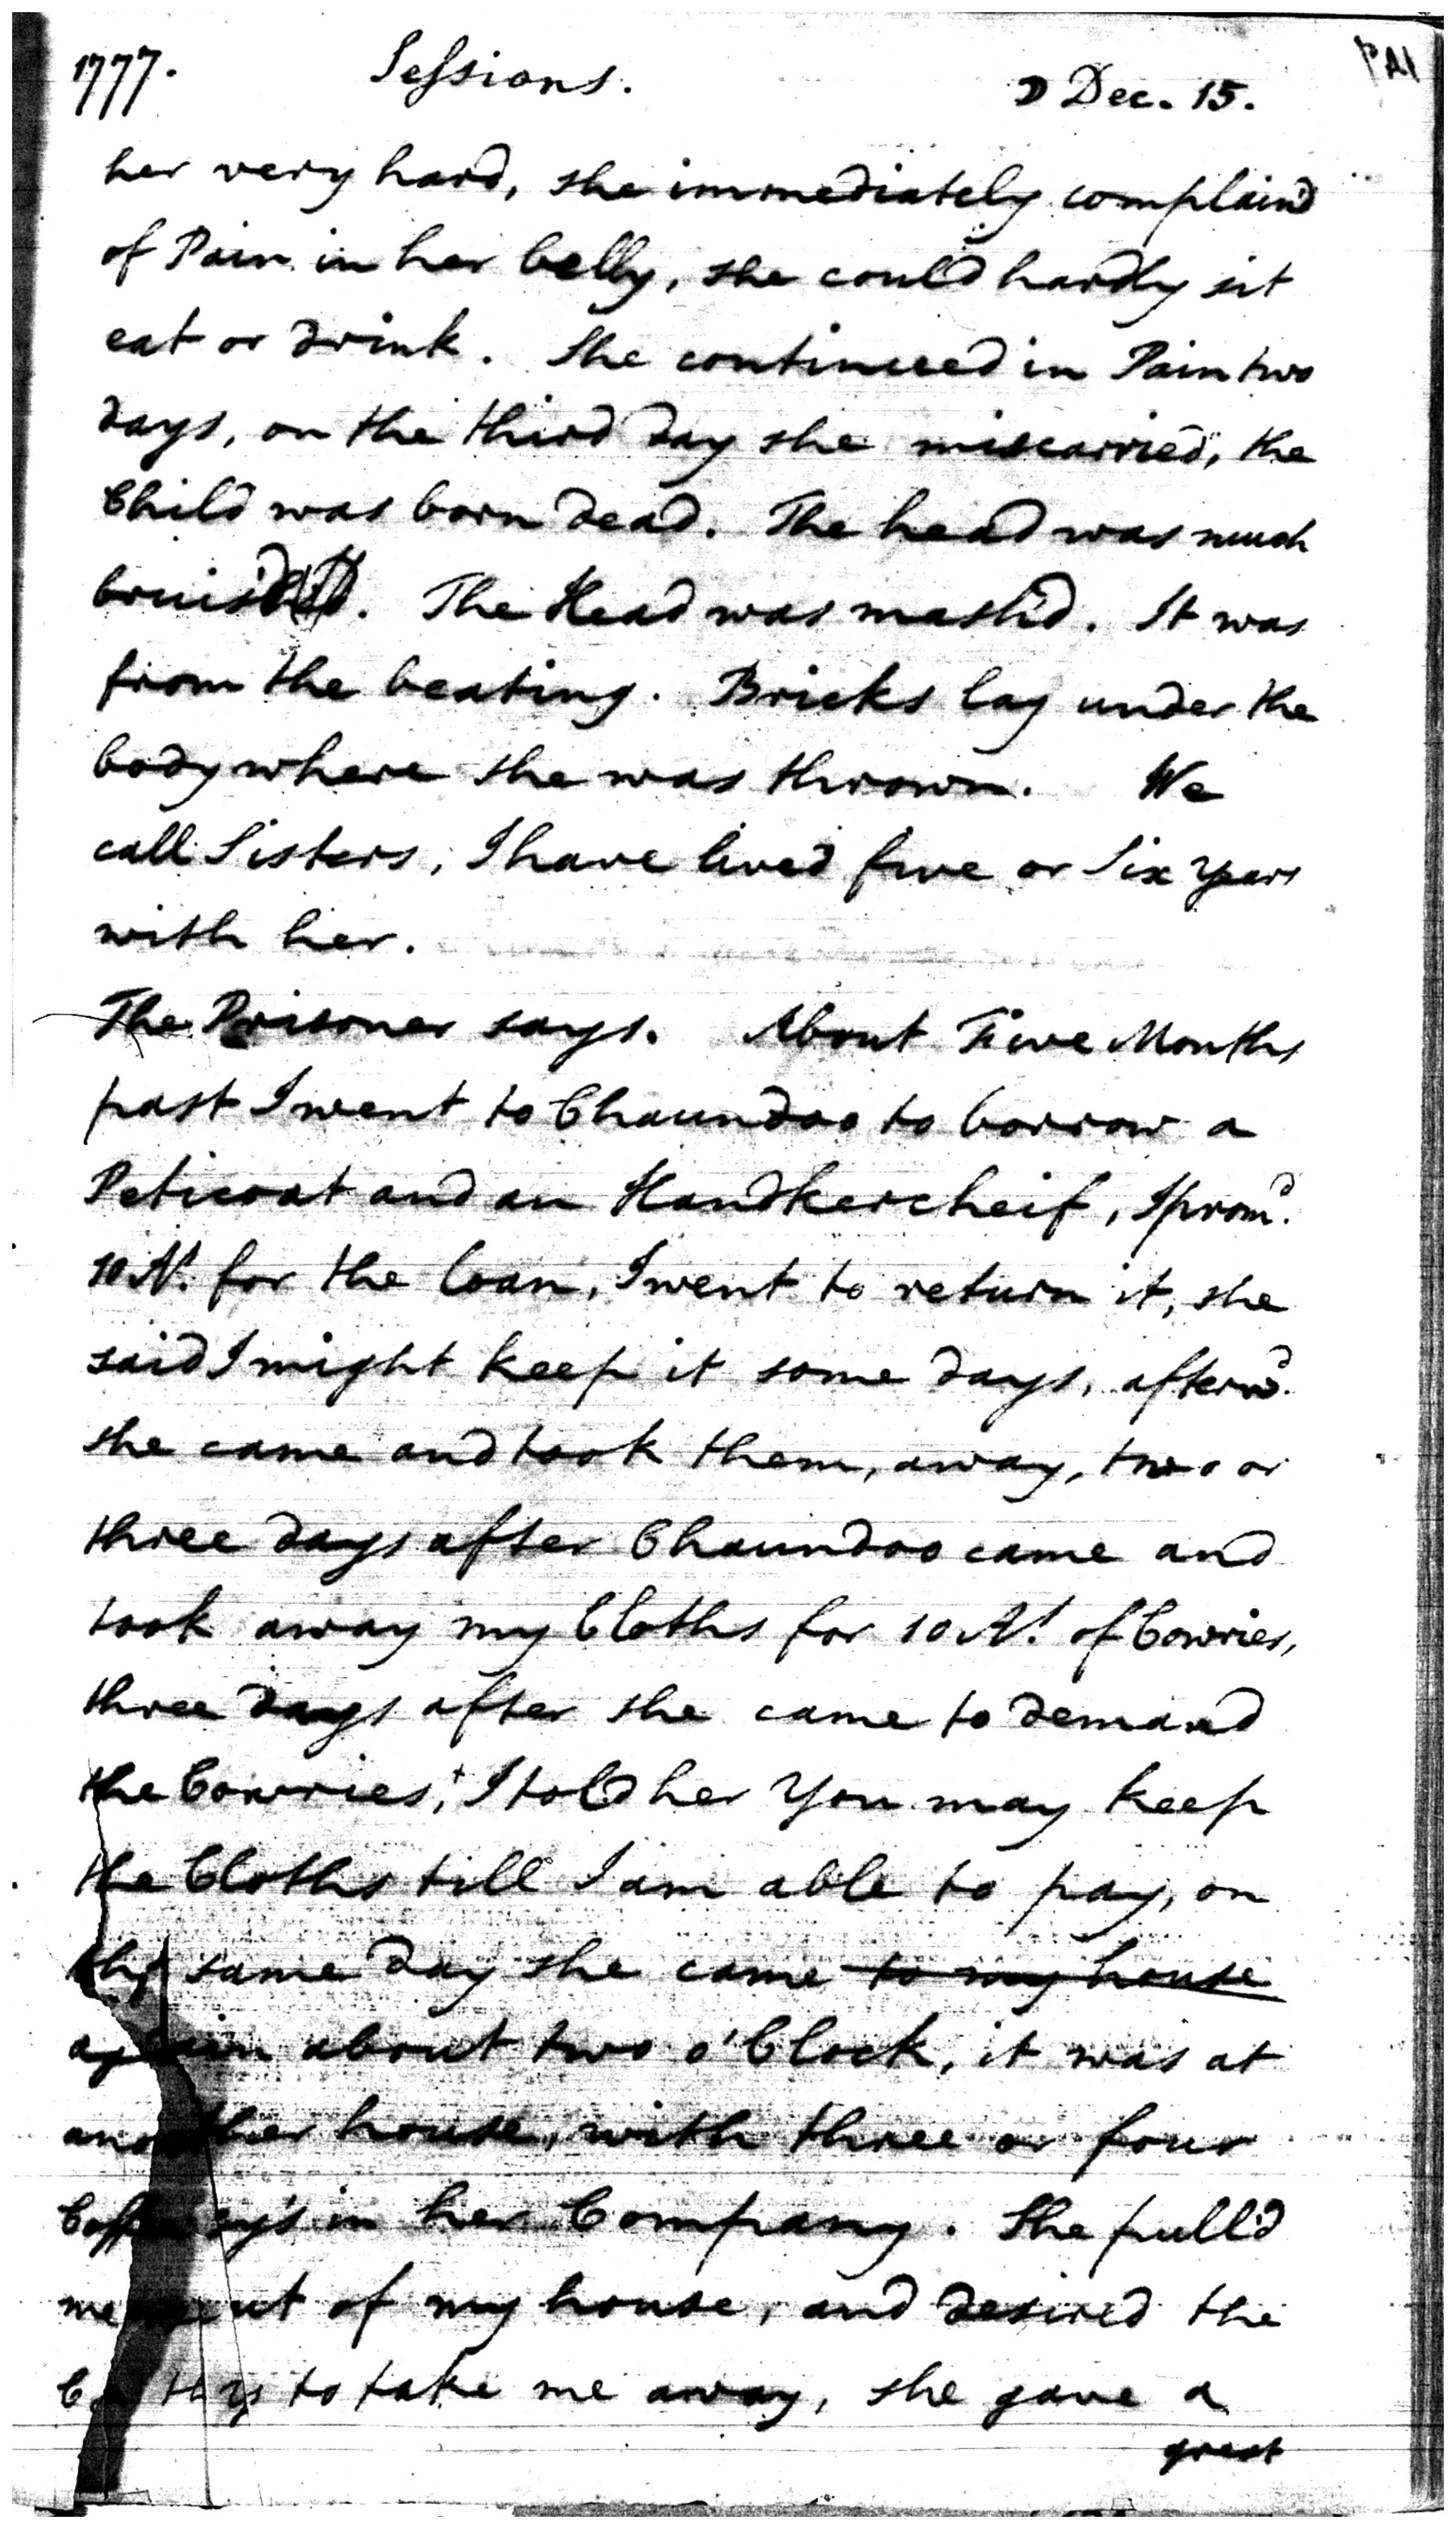 1777. Sessions. D Dec. 15.
her very hard, she immediately complain'd
of Pain in her belly, she could hardly sit
eat or drink. She continued in Pain two
days, on the third day she miscarried, the
Child was born dead. The head was much
bruis'd. The Head was mash'd. It was
from the beating. Bricks lay under the
body where she was thrown. We
call Sisters, I have lived five or Six Years
with her.
The Prisoner says. About Five Months
past I went to Chaundoo to borrow a
Peticoat and an Handkercheif, I prom.d
10 A.s for the loan, I went to return it, she
said I might keep it some days, afterw.d
she came and took them, away, two or
three days after Chaundoo came and
took away my Cloths for 10 A.s of Cowries,
three days after she came to demand
the Cowries, I told her You may keep
the Cloths till I am able to pay, on
the same day she came to my house
again about two o'Clock, it was at
another house, with three or four
in her Company. She pull'd
me out of my house, and desired the
to take me away, she gave a
great